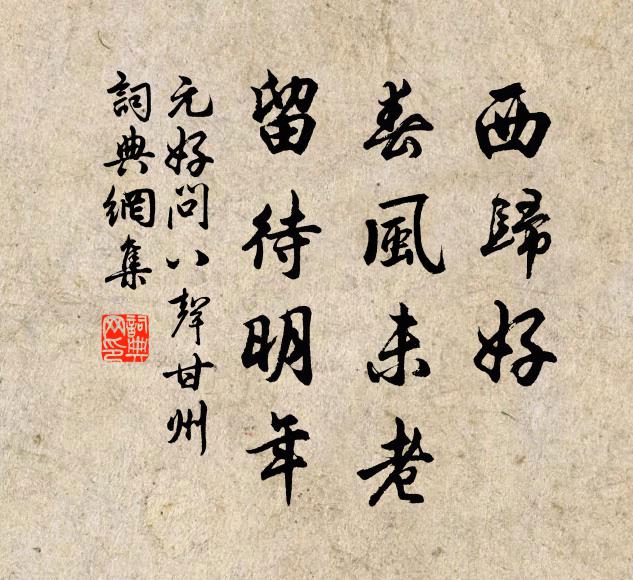 西歸好
春風未老
留待明年
元好問八聲甘州
詞典網集
詞典网印